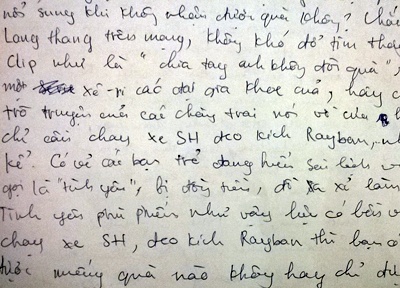 nổ súng khi không nhận được quà không? Chắc
Lang thang trên mạng, không khó để tìm thấy
clip như là "chia tay anh không đòi quà",
một xê-ri các đại gia khoe của, hay c
trò truyện của các chàng trai nói về của
chỉ cần chạy xe SH đeo kích Rayban,
kể. Có vẻ các bạn trẻ đang hiểu sai lệch v
gọi là "tình yêu", bị đồng tiền, đồ xa xỉ làm
Tình yêu phù phiếm như vậy liệu có bền v
chạy xe SH, đeo kích Rayban thì bạn
được những quà nào không hay chỉ